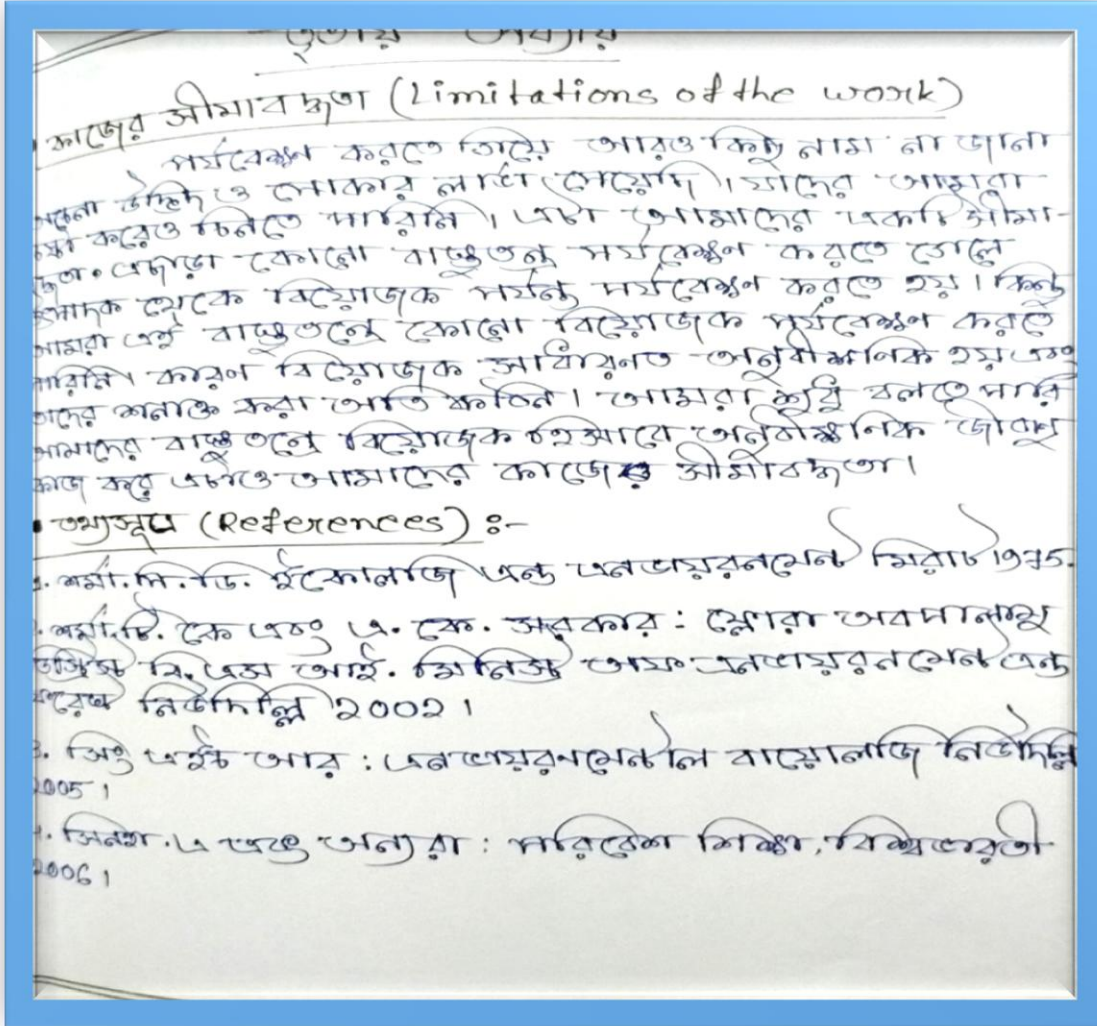 তৃতীয় অধ্যায়
কাজের সীমাবদ্ধতা (Limitations of the work)
পর্যবেক্ষণ করতে গিয়ে আরও কিছু নাম না জানা
অচেনা উদ্ভিদ ও পোকার লার্ভা পেয়েছি। যাদের আমরা
চেষ্টা করেও চিনতে পারিনি। এটা আমাদের একটি সীমা-
বদ্ধতা। এছাড়া কোনো বাস্তুতন্ত্র পর্যবেক্ষণ করতে গেলে
উৎপাদক থেকে বিয়োজক পর্যন্ত পর্যবেক্ষণ করতে হয়। কিন্তু
আমরা এই বাস্তুতন্ত্রে কোনো বিয়োজক পর্যবেক্ষণ করতে
পারিনি। কারণ বিয়োজক সাধারনত অনুবীক্ষনিক হয় এবং
তাদের শনাক্ত করা অতি কঠিন। আমরা শুধু বলতে পারি
আমাদের বাস্তুতন্ত্রে বিয়োজক হিসাবে অনুবীক্ষনিক জীবাণু
কাজ করে এটাও আমাদের কাজের সীমাবদ্ধতা।
• তথ্যসূত্র (References) :-
১. শর্মা. পি. ডি. ইকোলজি এন্ড এনভায়রনমেন্ট মিরাট 1975.
শর্মা. টি. কে এবং এ. কে. সরকার : ফ্লোরা অব পালামু
ডিস্ট্রিক্ট বি. এস আই. মিনিস্ট্রি অফ এনভায়রনমেন্ট এন্ড
ফরেস্ট নিউদিল্লি ২০০২।
3. সিং এইচ আর : এনভায়রণমেন্টাল বায়োলজি নিউদিল্লি
2005।
4. সিনহা. এ এবং অন্যরা : পরিবেশ শিক্ষা, বিশ্বভারতী
2006।